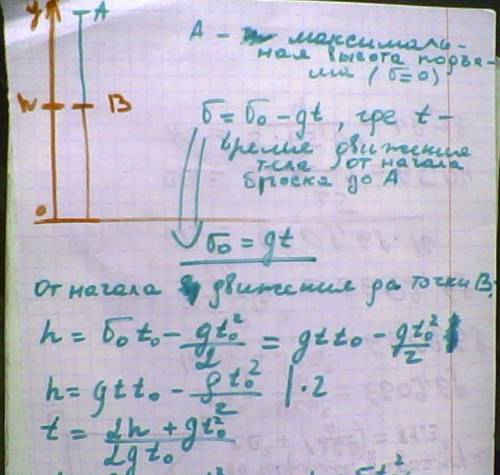 y A
h B
0
A - максималь-
ная высота подъе-
ма (v=0)
v = v₀ - gt, где t -
время движения
тела от начала
броска до A
v₀ = gt
от начала движения до точки B:
h = v₀t₀ - gt₀²/2 = gtt₀ - gt₀²/2
h = gtt₀ - gt₀²/2 | · 2
t = (2h + gt₀²)/(2gt₀)